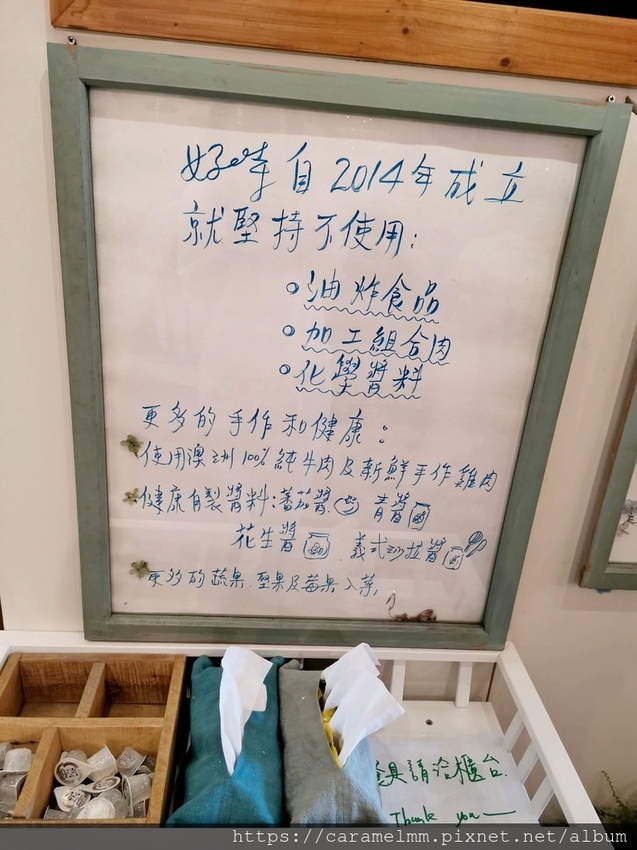 好咩自2014年成立
就堅持不使用:
油炸食品
加工組合肉
化學醬料
更多的手作和健康:
使用澳洲100%純牛肉及新鮮手作雞肉
健康自製醬料:蕃茄醬. 青醬
花生醬 義式沙拉醬
更多的蔬果.堅果及莓果入菜,
具請洽櫃台.
Thank you
https://caramelmm.pixnet.net/album